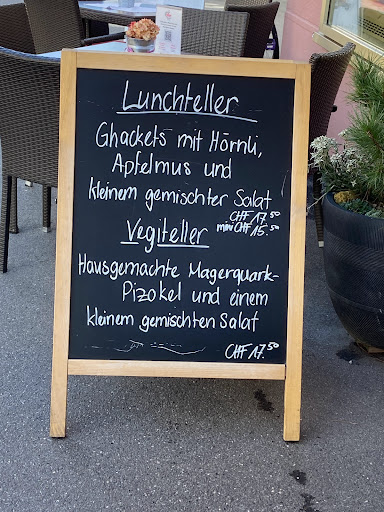 Lunchteller
Ghackets mit Hörnli,
Apfelmus und
kleinem gemischter Salat
CHF 17.50
mini CHF 15.50
Vegiteller
Hausgemachte Magerquark-
Pizokel und einem
kleinem gemischten Salat
CHF 17.50